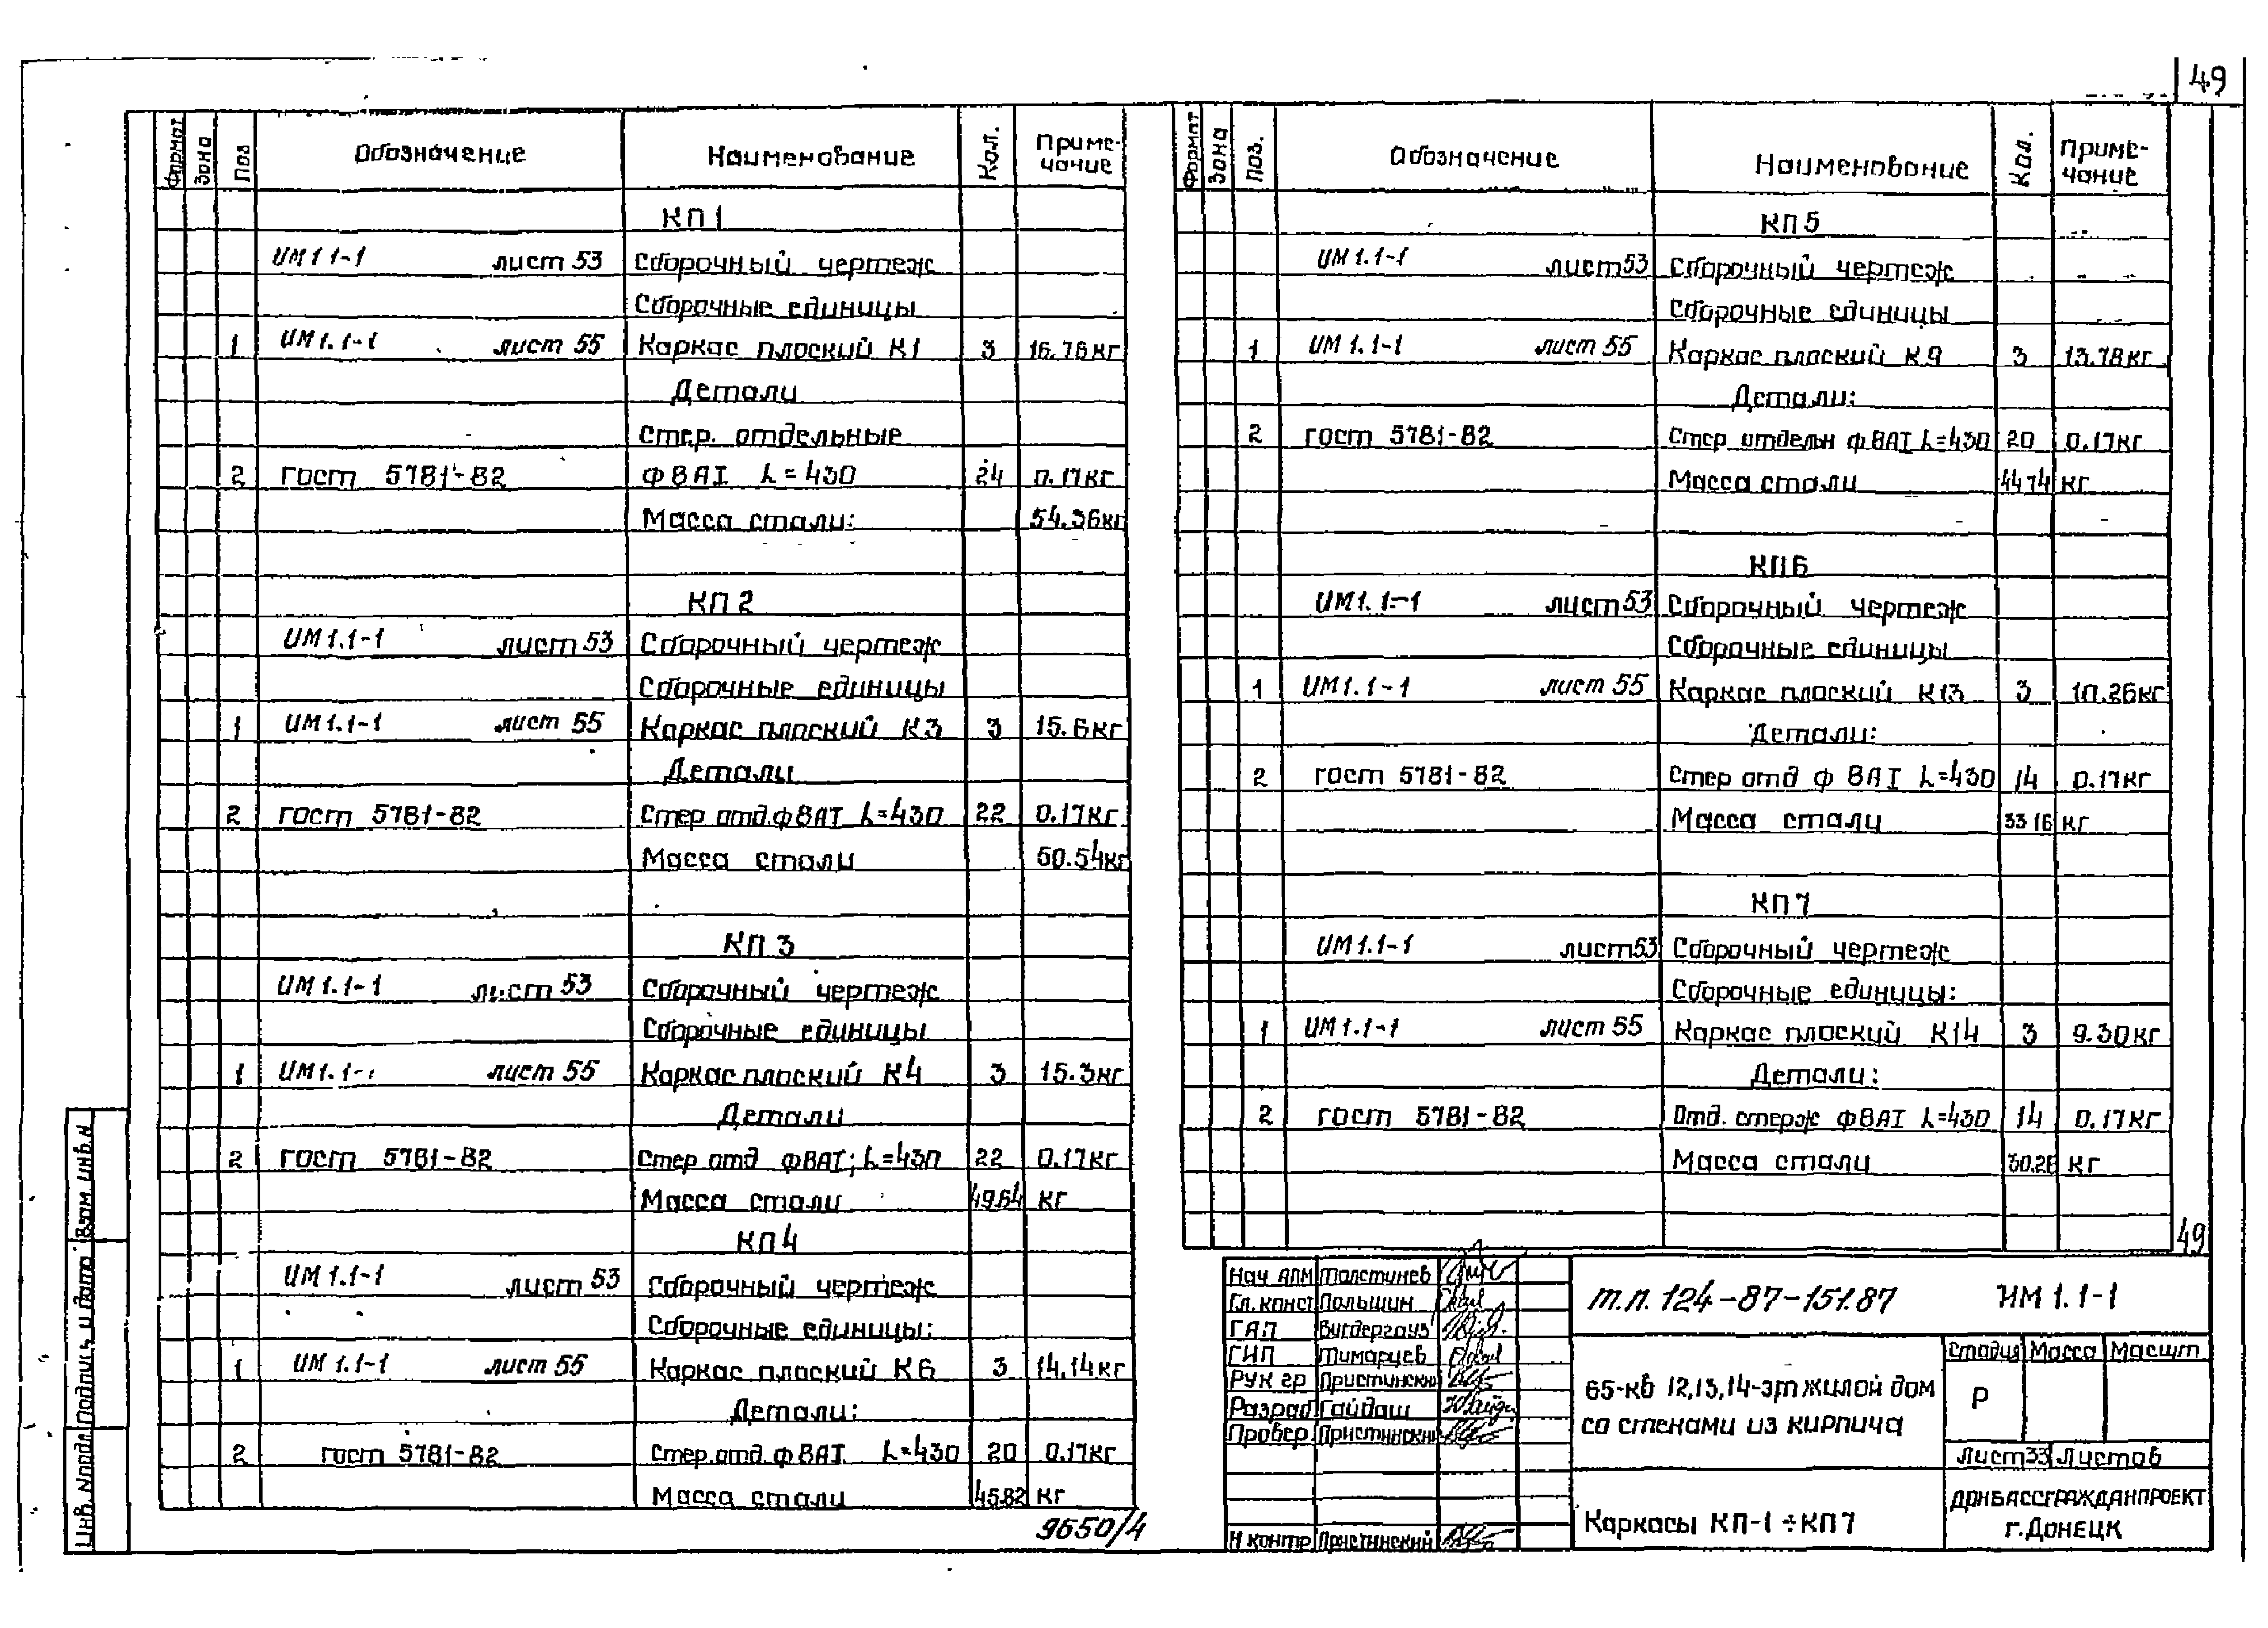 49
Формат Зона Поз Обозначение Наименование Кол. Приме-
чание
КП 1
ИМ 1 1-1 лист 53 Сборочный чертеж
Сборочные единицы
1 ИМ 1.1-1 лист 55 Каркас плоский К1 3 16.76кг
Детали
Стер. отдельные
2 гост 5781-82 Ф8АI L=430 24 0.17кг
Масса стали: 54.36кг
КП 2
ИМ 1.1-1 лист 53 Сборочный чертеж
Сборочные единицы
1 ИМ 1.1-1 лист 55 Каркас плоский К3 3 15.6кг
Детали
2 гост 5781-82 Стер отд.ф8АI L=430 22 0.17кг
Масса стали 50.54кг
КП 3
ИМ 1.1-1 лист 53 Сборочный чертеж
Сборочные единицы
1 ИМ 1.1-1 лист 55 Каркас плоский К4 3 15.3кг
Детали
2 гост 5781-82 Стер отд ф8АI; L=430 22 0.17кг
Масса стали 49.64 кг
КП4
ИМ 1.1-1 лист 53 Сборочный чертеж
Сборочные единицы:
1 ИМ 1.1-1 лист 55 Каркас плоский К6 3 14.14кг
Детали:
2 гост 5781-82 Стер.отд.ф8АI L=430 20 0.17кг
Масса стали 45.82 кг
9650/4
Формат Зона Поз. Обозначение Наименование Кол. Приме-
чание
КП 5
ИМ 1.1-1 лист 53 Сборочный чертеж
Сборочные единицы
1 ИМ 1.1-1 лист 55 Каркас плоский К9 3 13.78кг
Детали:
2 гост 5781-82 Стер отдельн ф8АI L=430 20 0.17кг
Масса стали 44 74 кг
КП6
ИМ 1.1-1 лист 53 Сборочный чертеж
Сборочные единицы
1 ИМ 1.1-1 лист 55 Каркас плоский К13 3 10.26кг
Детали:
2 гост 5781-82 Стер отд ф 8АI L=430 14 0.17кг
Масса стали 33 16 кг
КП 7
ИМ 1.1-1 лист 53 Сборочный чертеж
Сборочные единицы:
1 ИМ 1.1-1 лист 55 Каркас плоский К14 3 9.30кг
Детали:
2 гост 5781-82 Отд. стерж ф8АI L=430 14 0.17кг
Масса стали 30.28 кг
49
Нач АПМ Толстинев
Гл.конст Польшин
ГАП Вигдергауз
ГИП Тимарцев
Рук гр Пристинский
Разраб Гайдаш
Провер Пристинский
Н контр Пристинский
т.п. 124-87-151.87 ИМ 1.1-1
65-кв 12,13,14-эт жилой дом
со стенами из кирпича
Стадия Масса Масшт
Р
Лист 33 Листов
Каркасы КП-1÷КП7
ДОНБАССГРАЖДАНПРОЕКТ
г.Донецк
Взам инв.N
Подпись и дата
Инв.Nподл